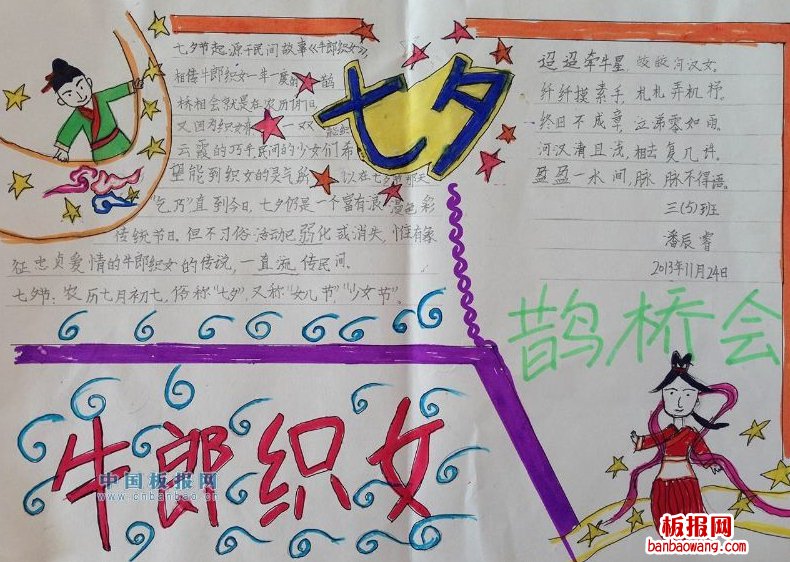 七夕
七夕节起源于民间故事《牛郎织女》,
相传牛郎织女一年一度 鹊
桥相会就是在农历
又因
云霞的巧手民间的少女们希
望能 到织女的灵气所 以在七夕那天
"乞巧"直到今日,七夕仍是一个富有浪漫色彩
传统节日。但不习俗活动已弱化或消失,惟有象
征忠贞爱情的牛郎织女的传说,一直流传民间。
七夕节:农历七月初七,俗称"七夕",又称"女儿节""少女节"。
迢迢牵牛星 皎皎河汉女。
纤纤摸素手,札札弄机杼。
终日不成章,泣涕零如雨。
河汉清且浅,相去复几许。
盈盈一水间,脉脉不得语。
三(5)班
潘辰睿
2013年11月24日
鹊桥会
牛郎织女
中国板报网
www.cnbanbao.cn
板报网
banbaowang.com